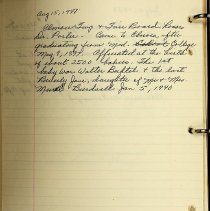 Aug 15, 1948
& Fair Board.
Dr. Porter - Came to Elnora after
graduating from Med. College
May 9, 1897. Officiated at the birth
of about 2500 babies. The 1st
baby was Walter Buffet & the last
Beverly Jane, daughter of Mr & Mrs.
Burdsell Jan 5, 1940